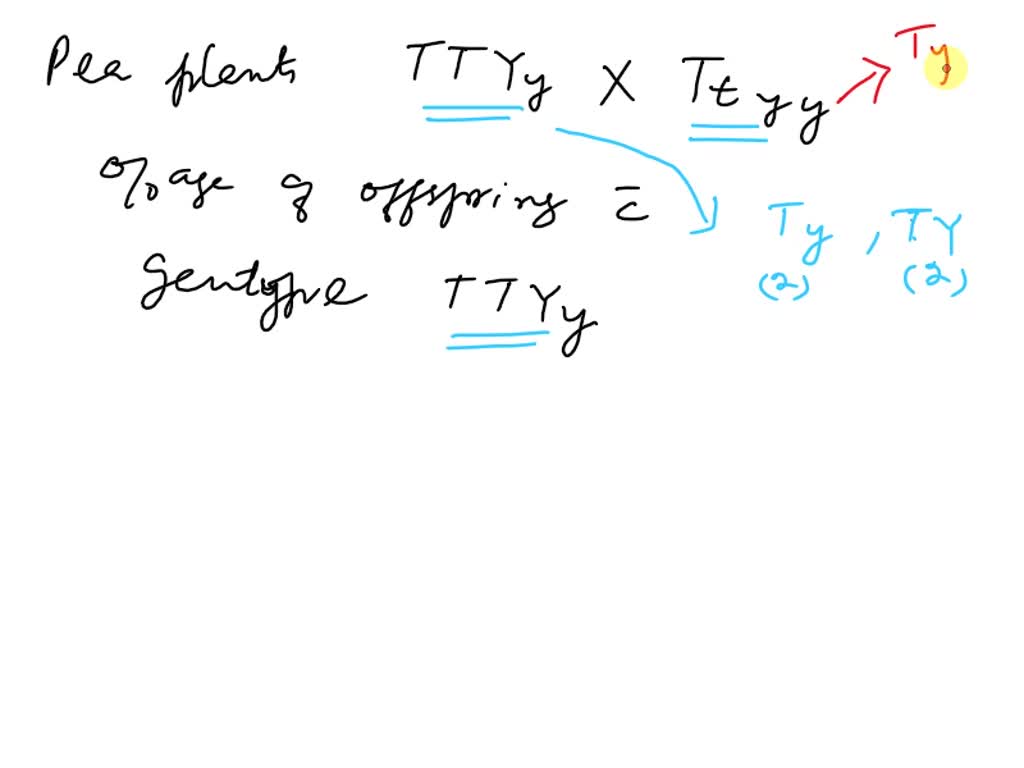 Pea plants TTYy X Ttyy → Ty
%age of offspring c̄
Ty , TY
(2) (2)
Gentype TTYy